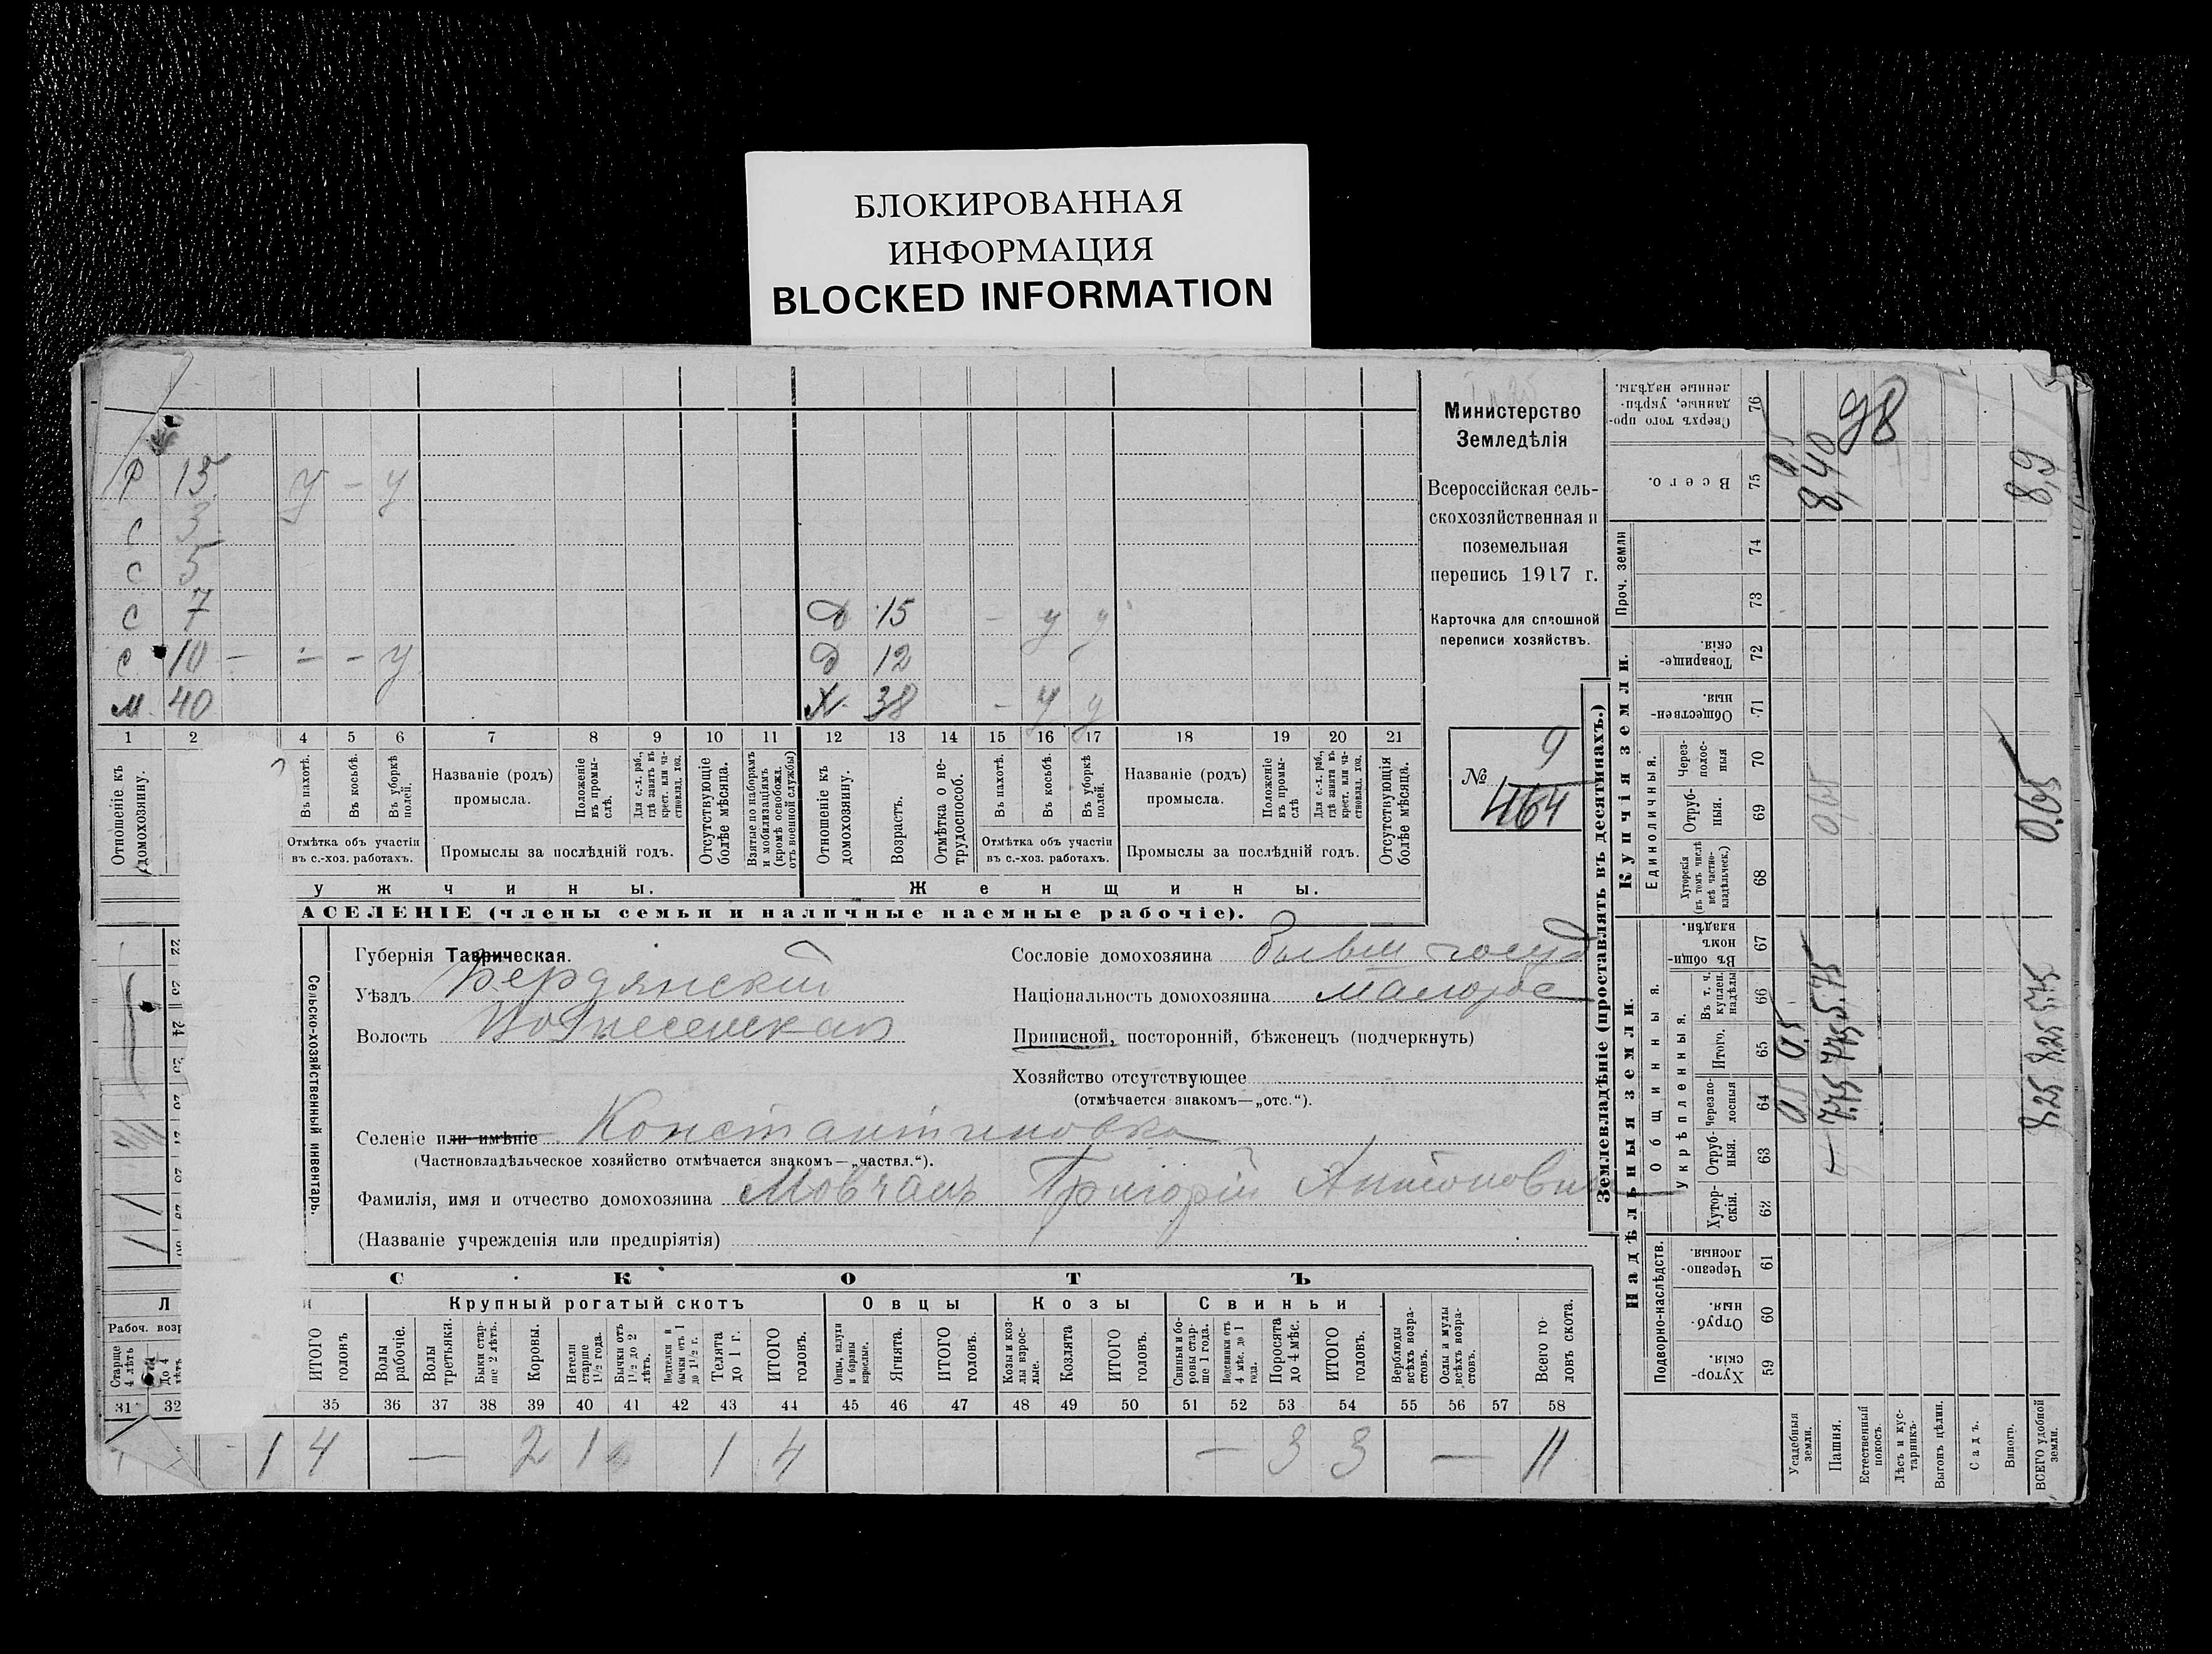 БЛОКИРОВАННАЯ
ИНФОРМАЦИЯ
BLOCKED INFORMATION
Р 15 У – У
С 3
С 5
С 7 Д 15 – У У
С 10 – – – У Д 12
М 40 Х 38 – У У
1 2 4 5 6 7 8 9 10 11 12 13 14 15 16 17 18 19 20 21
Отношеніе къ домохозяину.
Въ пахотѣ.
Въ косьбѣ.
Въ уборкѣ полей.
Отмѣтка объ участіи въ с.-хоз. работахъ.
Названіе (родъ) промысла.
Положеніе въ промыслѣ.
Для с.-х. раб., гдѣ занятъ въ крест. или частновлад. хоз.
Промыслы за послѣдній годъ.
Отсутствующіе болѣе мѣсяца.
Взятые по наборамъ и мобилизаціямъ (кромѣ освобожд. отъ военной службы)
Отношеніе къ домохозяину.
Возрастъ.
Отмѣтка о нетрудоспособ.
Въ пахотѣ.
Въ косьбѣ.
Въ уборкѣ полей.
Отмѣтка объ участіи въ с.-хоз. работахъ.
Названіе (родъ) промысла.
Положеніе въ промыслѣ
Для с.-х. раб., гдѣ занята въ крест. или частновлад. хоз.
Промыслы за послѣдній годъ.
Отсутствующія болѣе мѣсяца.
ужчины. Женщины.
АСЕЛЕНІЕ (члены семьи и наличные наемные рабочіе).
Министерство
Земледѣлія
Всероссійская сель-
скохозяйственная и
поземельная
перепись 1917 г.
Карточка для сплошной
переписи хозяйствъ.
№ 9
464
Сельско-хозяйственный инвентарь.
Губернія Таврическая.
Уѣздъ Бердянскій
Волость Вознесенская
Селеніе или имѣніе Константиновка
(Частновладѣльческое хозяйство отмѣчается знакомъ—„частвл.“).
Фамилія, имя и отчество домохозяина Мовчанъ Григорій Антонович
(Названіе учрежденія или предпріятія)
Сословіе домохозяина бывш госуд
Національность домохозяина малорос
Приписной, посторонній, бѣженецъ (подчеркнуть)
Хозяйство отсутствующее
(отмѣчается знакомъ—„отс.“).
СКОТЪ
Л
Рабоч. возр
Старше 4 лѣтъ
До 4 лѣтъ
ИТОГО головъ
Крупный рогатый скотъ
Волы рабочіе.
Волы третьяки.
Быки старше 2 лѣтъ.
Коровы.
Нетели старше 1½ года.
Бычки отъ 1½ до 2 лѣтъ.
Телята до 1 г.
ИТОГО головъ.
Овцы
Овцы, валухи и бараны взрослые.
Ягнята.
ИТОГО головъ.
Козы
Козы и козлы взрослые.
Козлята
ИТОГО головъ.
Свиньи
Свиньи и боровы старше 1 года.
Подсвинки отъ 4 мѣс. до 1 года.
Поросята до 4 мѣс.
ИТОГО головъ.
Верблюды всѣхъ возрастовъ.
Ослы и мулы всѣхъ возрастовъ.
Всего головъ скота.
31 32 35 36 37 38 39 40 41 42 43 44 45 46 47 48 49 50 51 52 53 54 55 56 57 58
1 4 — 2 1 1 4 — 3 3 — 11
Землевладѣніе (проставлять въ десятинахъ.)
Надѣльныя земли.
Купчія земли.
Проч. земли
Подворно-наслѣдств.
Общинныя.
Укрѣпленныя.
Единоличныя.
Хуторскія. 59
Отрубныя. 60
Черезполосныя. 61
Хуторскія. 62
Отрубныя. 63
Черезполосныя 64
Итого. 65
Въ т. ч. куплен. надѣлы 66
Въ общинномъ владѣн. 67
Хуторскія (въ томъ числѣ всѣ частновладѣльческ.) 68
Отрубныя. 69
Черезполосныя 70
Общественныя. 71
Товарищескія. 72
73
74
Всего. 75
Сверхъ того проданные, укрѣпленные надѣлы. 76
Усадебныя земли. 0,5 0,5
Пашня. — 7.75 7.75 5.75 0,65 8,40
Естественный покосъ.
Лѣсъ и кустарникъ.
Выгонъ цѣлин.
Садъ.
Виногр.
ВСЕГО удобной земли. 8.25 8.25 5.75 0,65 8,9
98